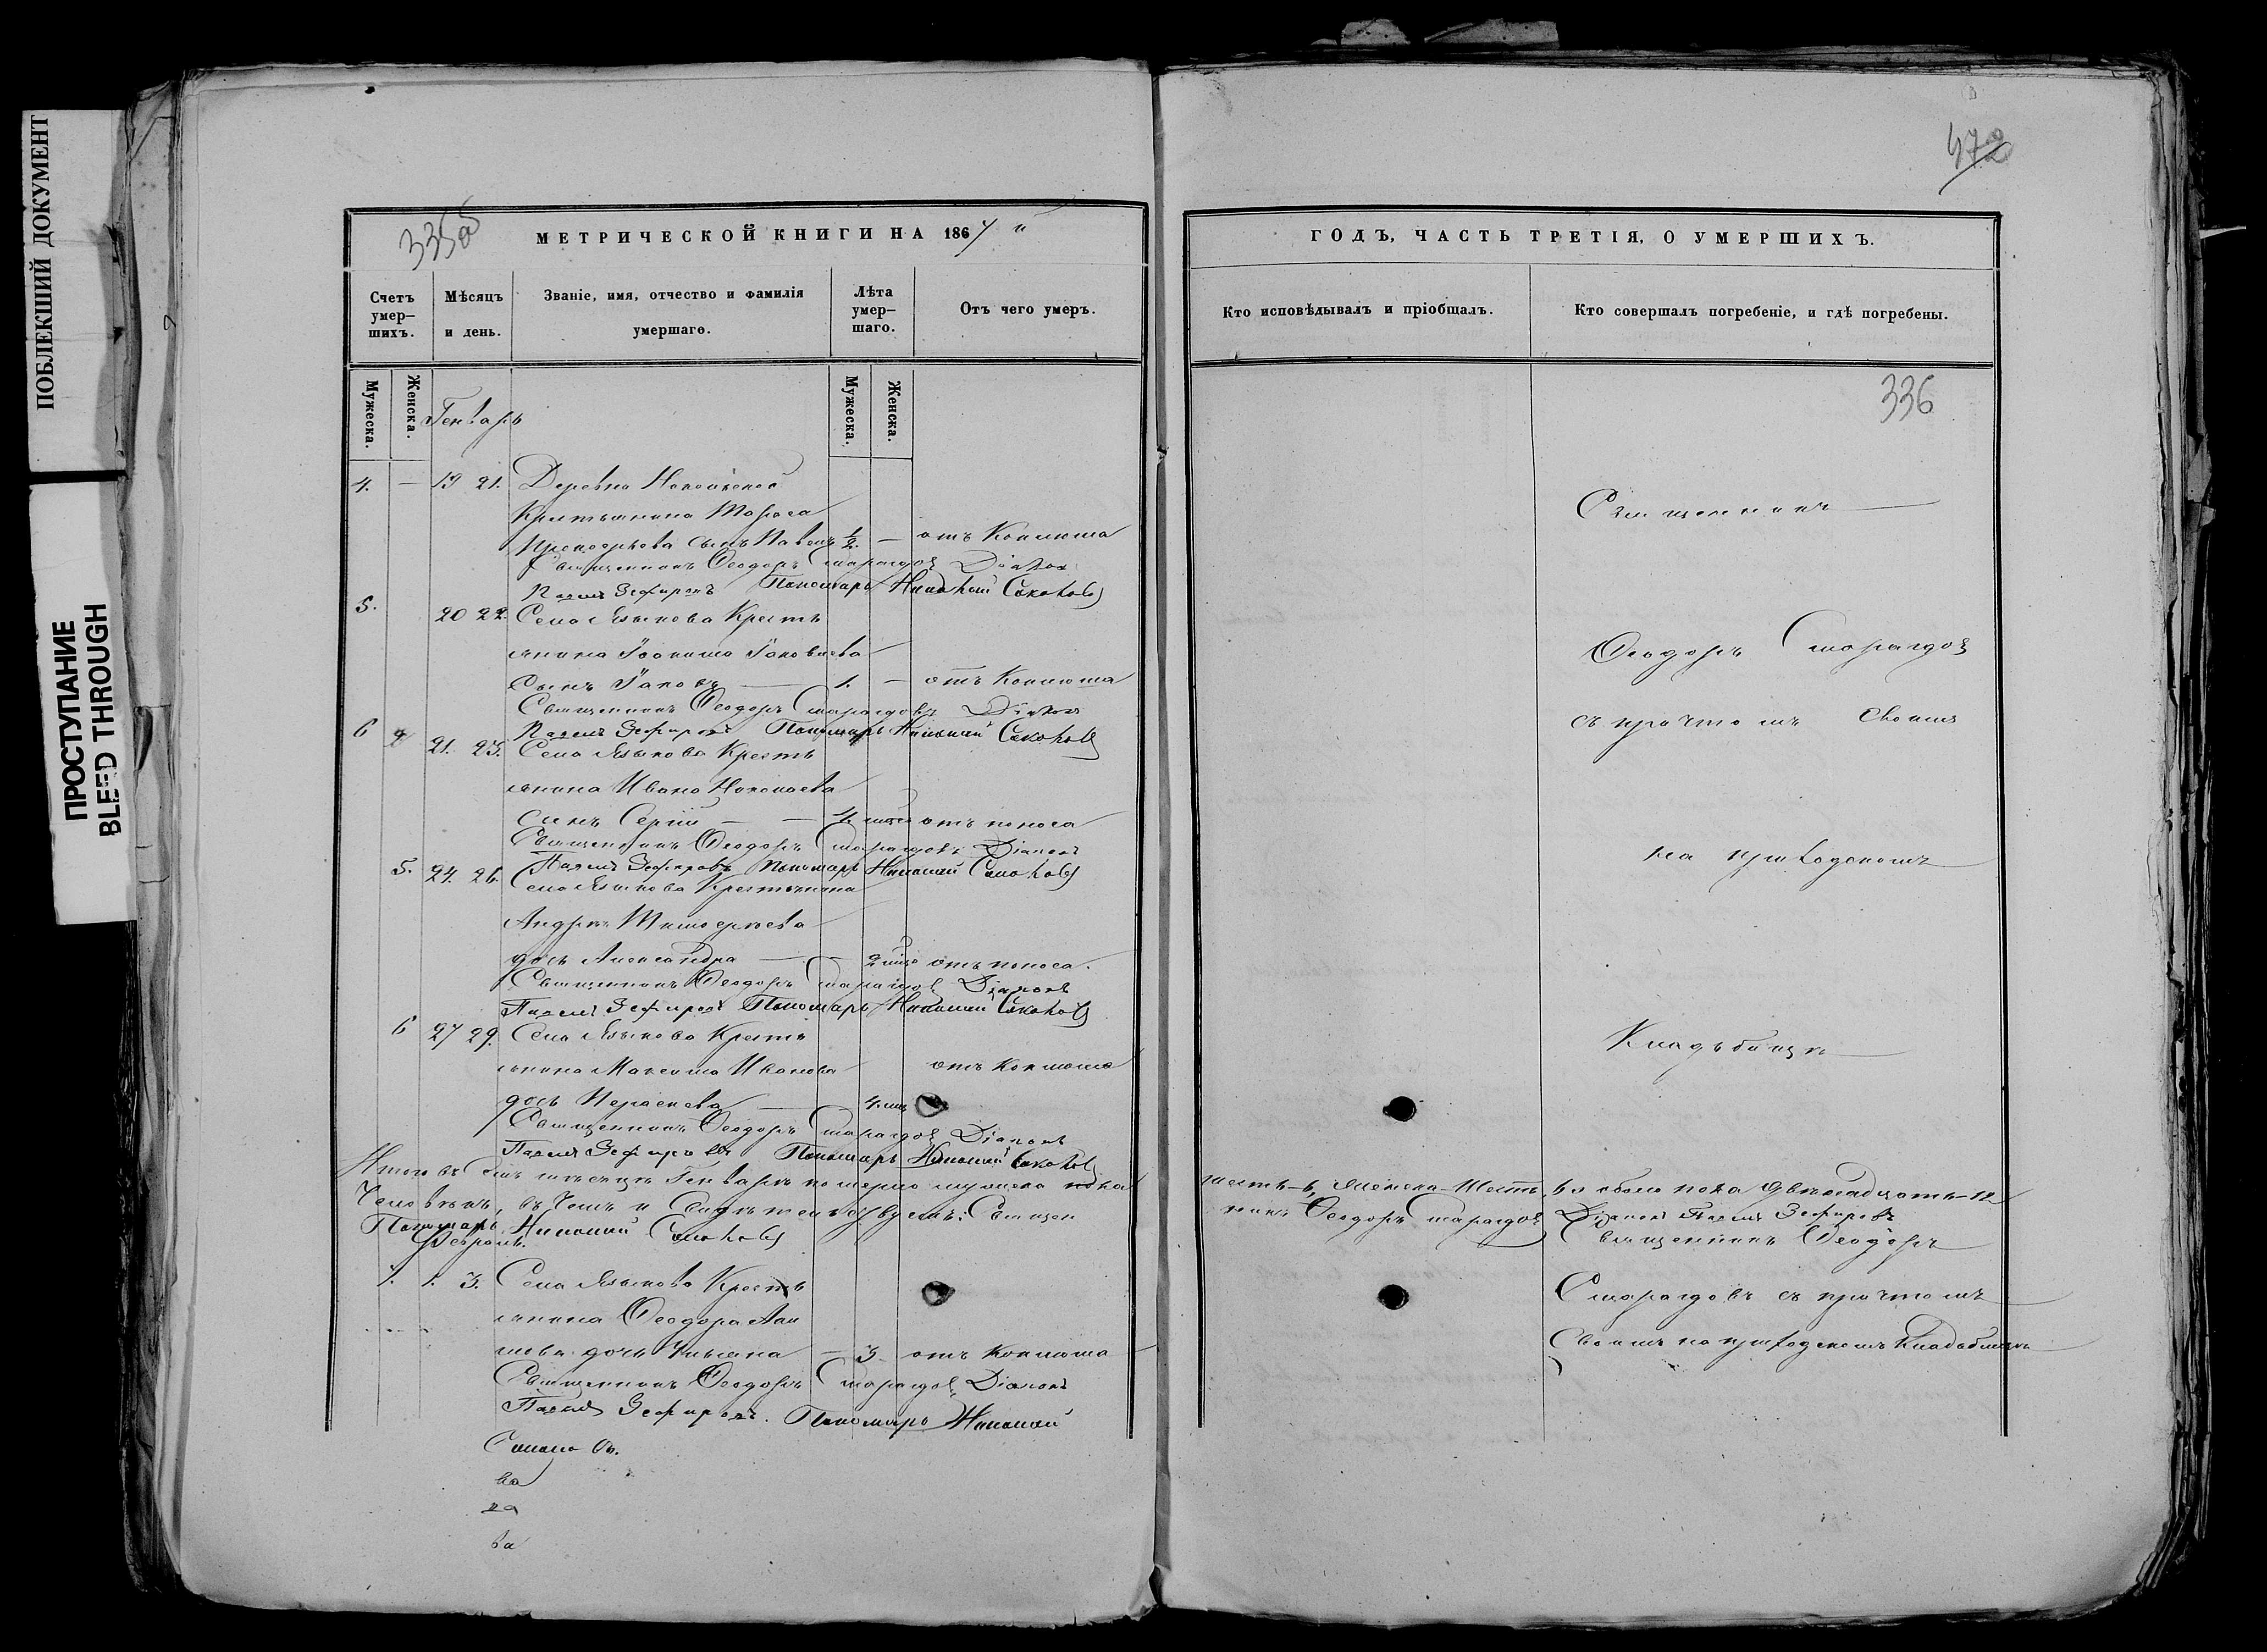 ПОБЛЕКШИЙ ДОКУМЕНТ
ПРОСТУПАНИЕ
BLEED THROUGH
335об
МЕТРИЧЕСКОЙ КНИГИ НА 1867й
Счетъ умер-
шихъ.
Мѣсяцъ
и день.
Званіе, имя, отчество и фамилія
умершаго.
Лѣта
умер-
шаго.
Отъ чего умеръ.
Мужеска.
Женска.
Генварь
Мужеска.
Женска.
4. — 19 21. Деревни
Крестьянина Тараса
Прокофьева сынъ Павелъ 1/2. — отъ Коклюша
Священникъ Ѳеодоръ Смарагдовъ Діаконъ
Павелъ Зефировъ Пономарь Николай Соколовъ
5. 20 22. Села Языкова Кресть
янина Іоакима Іаковлева
Сынъ Іаковъ — 1. — отъ Коклюша
Священникъ Ѳеодоръ Смарагдовъ Діаконъ
Павелъ Зефировъ Пономарь Николай Соколовъ
6 21. 23. Села Языкова Кресть
янина Ивана Николаева
сынъ Сергій — — отъ поноса
Священникъ Ѳеодоръ Смарагдовъ Діаконъ
Павелъ Зефировъ Пономарь Николай Соколовъ
5. 24. 26. Села Языкова Крестьянина
Андрея Тимофеева
дочь Александра — — 2 отъ поноса.
Священникъ Ѳеодоръ Смарагдовъ Діаконъ
Павелъ Зефировъ Пономарь Николай Соколовъ
6 27 29. Села Языкова Кресть
янина Максима Иванова отъ Коклюша
дочь Параскева — 4.
Священникъ Ѳеодоръ Смарагдовъ Діаконъ
Павелъ Зефировъ Пономарь Николай Соколовъ
Итого въ семъ мѣсяцѣ Генварѣ померло мужеска пола
Человѣкъ, въ чемъ и Свидѣтельствуемъ: Священ
Пономарь Николай Соколовъ
Февраль.
7. 1. 3. Села Языкова Кресть
янина Ѳеодора
дочь Ульяна — 3 отъ Коклюша
Священникъ Ѳеодоръ Смарагдовъ Діаконъ
Павелъ Зефировъ. Пономарь Николай
Соколовъ.
ва
на
ва
472
ГОДЪ, ЧАСТЬ ТРЕТІЯ, О УМЕРШИХЪ.
Кто исповѣдывалъ и пріобщалъ.
Кто совершалъ погребеніе, и гдѣ погребены.
336
Священникъ
Ѳеодоръ Смарагдовъ
съ причтомъ своимъ
на приходскомъ
Кладбищѣ
шесть-6, женска-шесть, 6 и обоего пола двѣнадцать-12
никъ Ѳеодоръ Смарагдовъ Діаконъ Павелъ Зефировъ
Священникъ Ѳеодоръ
Смарагдовъ съ причтомъ
Своимъ на приходскомъ Кладбищѣ